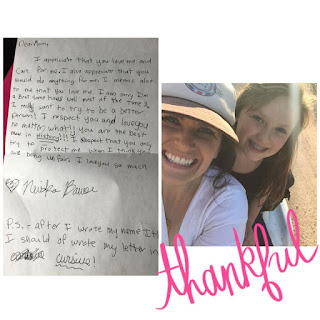 Dear Mom,
I appreciate that you love me and
care for me. I also appreciate that you
would do anything for me. It means alot
to me that you love me. I am sorry I'm
a Brat some times well most of the time &
I really want to try to be a better
person! I respect you and love you
no matter what!! you are the best
mom in History!!! I respect that you only
try to protect me when I think you
are being unfair. I love you so much
Bauer
P.S. - after I wrote my name I th
I should of wrote my letter in
cursive!
thankful